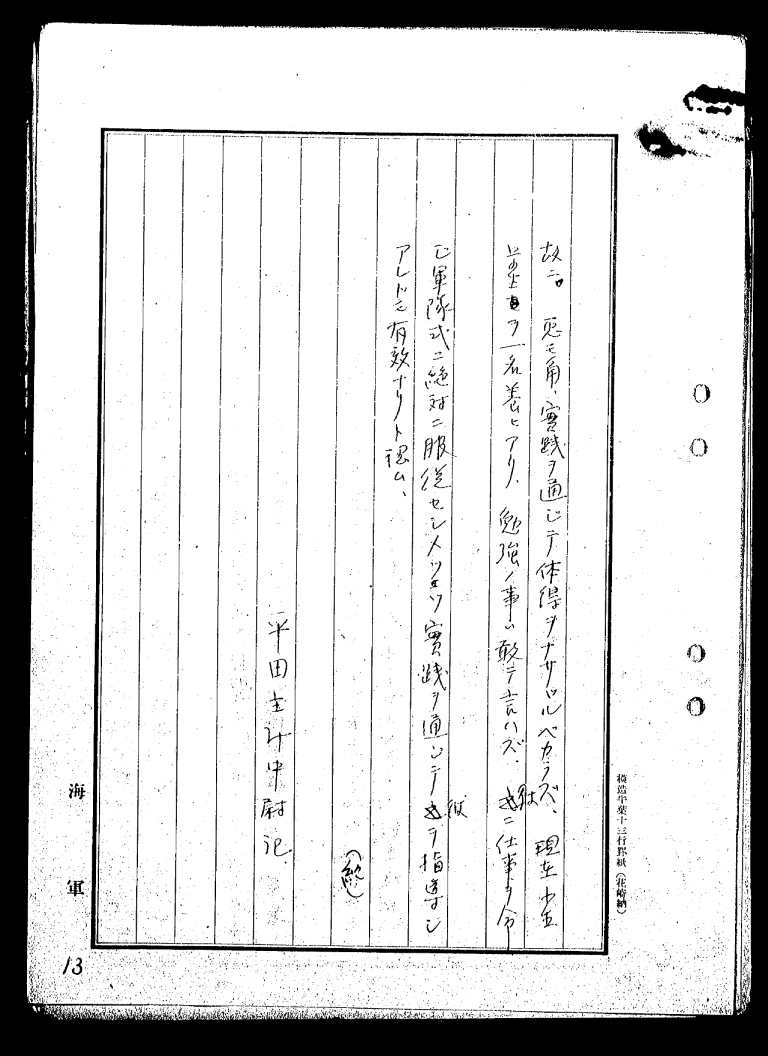 故ニ。兎モ角、實践ヲ通ジテ体得ヲナサザルベカラズ、現在
ヲ一名養ヒアリ、勉強ノ事ハ敢テ言ハズ、彼ニ仕事ヲ命
ジ軍隊式ニ絶対ニ服従セシメツツ實践ヲ通シテ彼ヲ指導シ
アレドモ有效ナリト認ム、
(終)
平田主計中尉記
模造半葉十三行罫紙(花崎納)
海軍
13